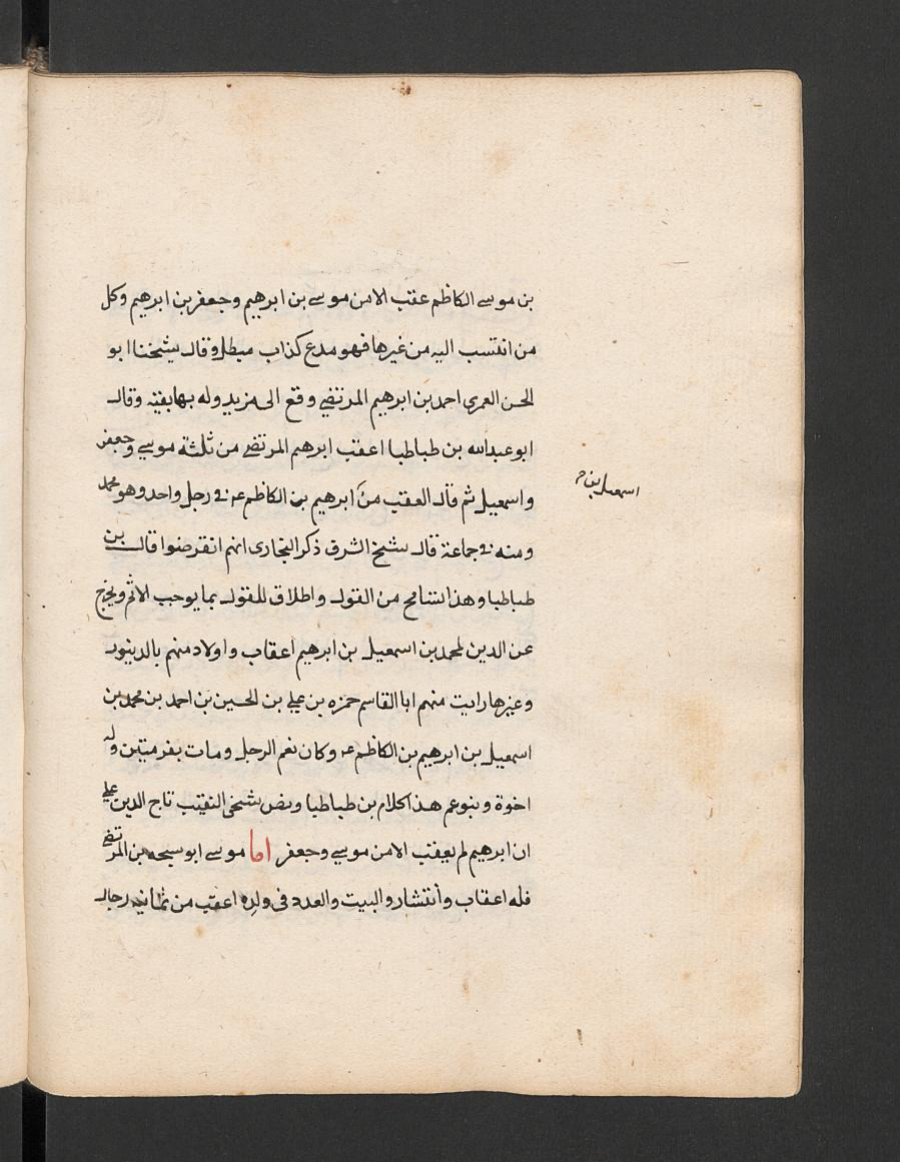 بن موسے الكاظم عقب الا من موسے بن ابرهيم وجعفر بن ابرهيم وكل
من انتسب اليه من غيرها فهو مدع كذاب مبطل وقال شيخنا ابو
الحسن العمري احمد بن ابرهيم المرتضي وقع الى مزيد وله بها بقيّه وقال
ابو عبدالله بن طباطبا اعقب ابرهيم المرتضى من ثلثة موسي وجعفر
واسمعيل ثم قال العقب من ابرهيم بن الكاظم عه في رجل واحد وهو محمد
اسمعيل بن
ومنه في جماعة قال شيخ الشرف ذكر البخارى انهم انقرضوا قال بن
طباطبا وهذا التسامح من القول واطلاق للقول بما يوجب الاثم ويخرج
عن الدين لمحمد بن اسمعيل بن ابرهيم اعقاب واولاد منهم بالدينور
وغيرها رايت منهم ابا القاسم حمزه بن علي بن الحسين بن احمد بن محمد بن
اسمعيل بن ابرهيم بن الكاظم عه وكان نعم الرجل ومات بقرميين وله
اخوة وبنو عم هذا كلام بن طباطبا ونص شيخى النقيب تاج الدين علي
ان ابرهيم لم يعقب الا من موسي وجعفر اما موسے ابو سبحه بن المرتضى
فله اعقاب وانتشار والبيت والعدد فى ولده اعقب من ثمانيه رجال